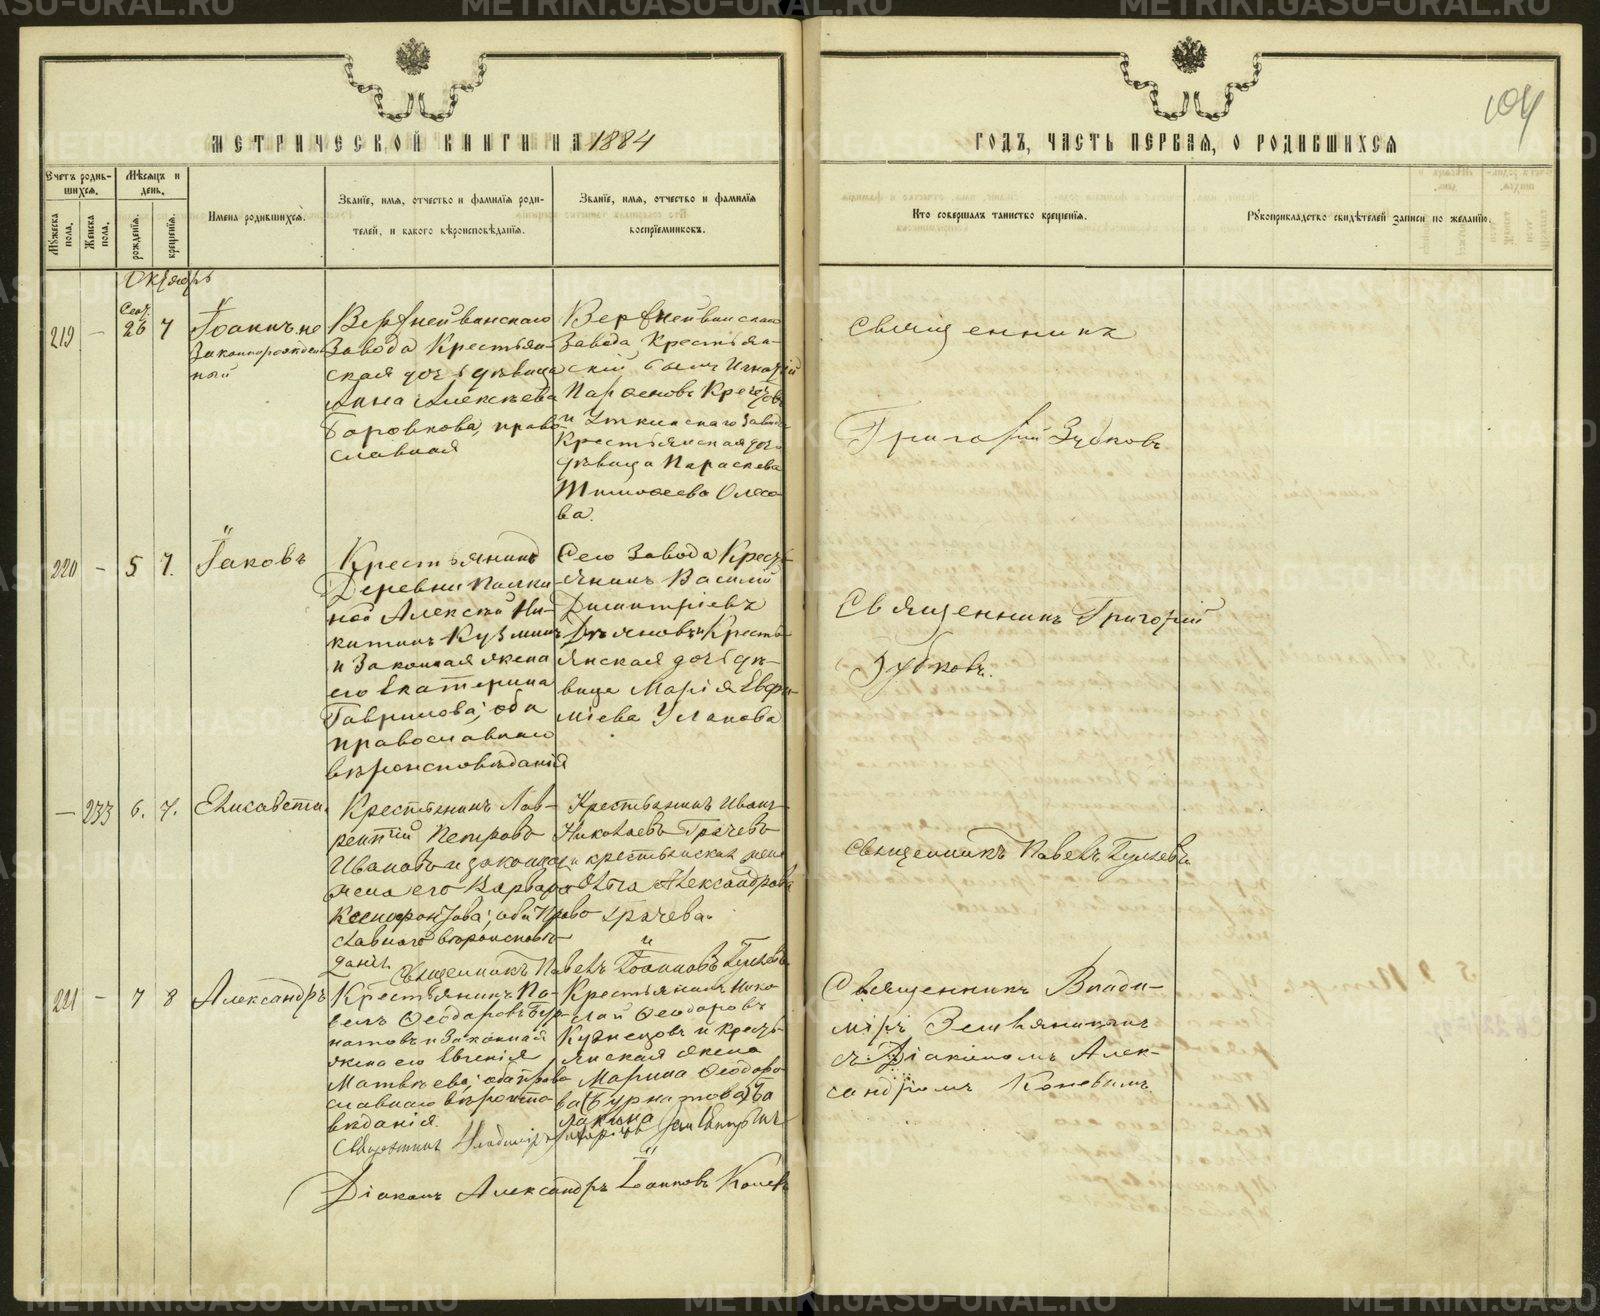 METRIKI.GASO-URAL.RU
104
МЕТРИЧЕСКОЙ КНИГИ НА 1884
ГОДЪ, ЧАСТЬ ПЕРВАЯ, О РОДИВШИХСЯ
Счетъ родившихся.
Мужеска пола.
Женска пола.
Мѣсяцъ и день.
рожденія.
крещенія.
Имена родившихся.
Званіе, имя, отчество и фамилія родителей, и какого вѣроисповѣданія.
Званіе, имя, отчество и фамилія воспріемниковъ.
Кто совершалъ таинство крещенія.
Рукоприкладство свидѣтелей записи по желанію.
Октябрь
219
–
Сент.
26
7
Іоаннъ не
законнорожден
ный
Верхнейвинскаго
завода Крестьян-
ская дочь дѣвица
Анна Алексѣева
Боровкова, право
славная
Верхнейвинскаго
завода Крестья-
скій сынъ Игнатій
Парѳеновъ
и Уткинскаго завода
Крестьянская дочь
дѣвица Параскева
Тимоѳеева
ва.
Священникъ
Григорій Зубковъ
220
–
5
7.
Іаковъ
Крестьянинъ
Деревни Палки
ной Алексѣй Ни-
китинъ Кузминъ
и законная жена
его Екатерина
Гаврилова; оба
православнаго
вѣроисповѣданія
Сего завода Крест-
янинъ Василій
Димитріевъ
и Кресть
янская дочь дѣ-
вица Марія Евфи-
міева
Священникъ Григорій
Зубковъ.
–
233
6.
7.
Елисавета.
Крестьянинъ Лав-
рентій Петровъ
Ивановъ и законная
жена его Варвара
Ксенофонтова; оба Право
славнаго вѣроисповѣ-
данія.
Крестьянинъ Иванъ
Николаевъ Грачевъ
и крестьянская жена
Ольга Александрова
Грачева.
Священникъ Павелъ Іоанновъ
Священникъ Павелъ
221
–
7
8
Александръ
Крестьянинъ Па-
велъ Ѳеодоровъ Бур-
матовъ и законная
жена его Евгенія
Матвѣева; оба право
славнаго вѣроиспо
вѣданія.
Крестьянинъ Нико
лай Ѳеодоровъ
Кузнецовъ и кресть
янская жена
Марина Ѳеодоро
ва (Бурматова)
Священникъ Владиміръ
Діаконъ Александръ Іоанновъ Коневъ
Священникъ Влади-
міръ Земляницынъ
съ Діакономъ Алек-
сандромъ Коневымъ